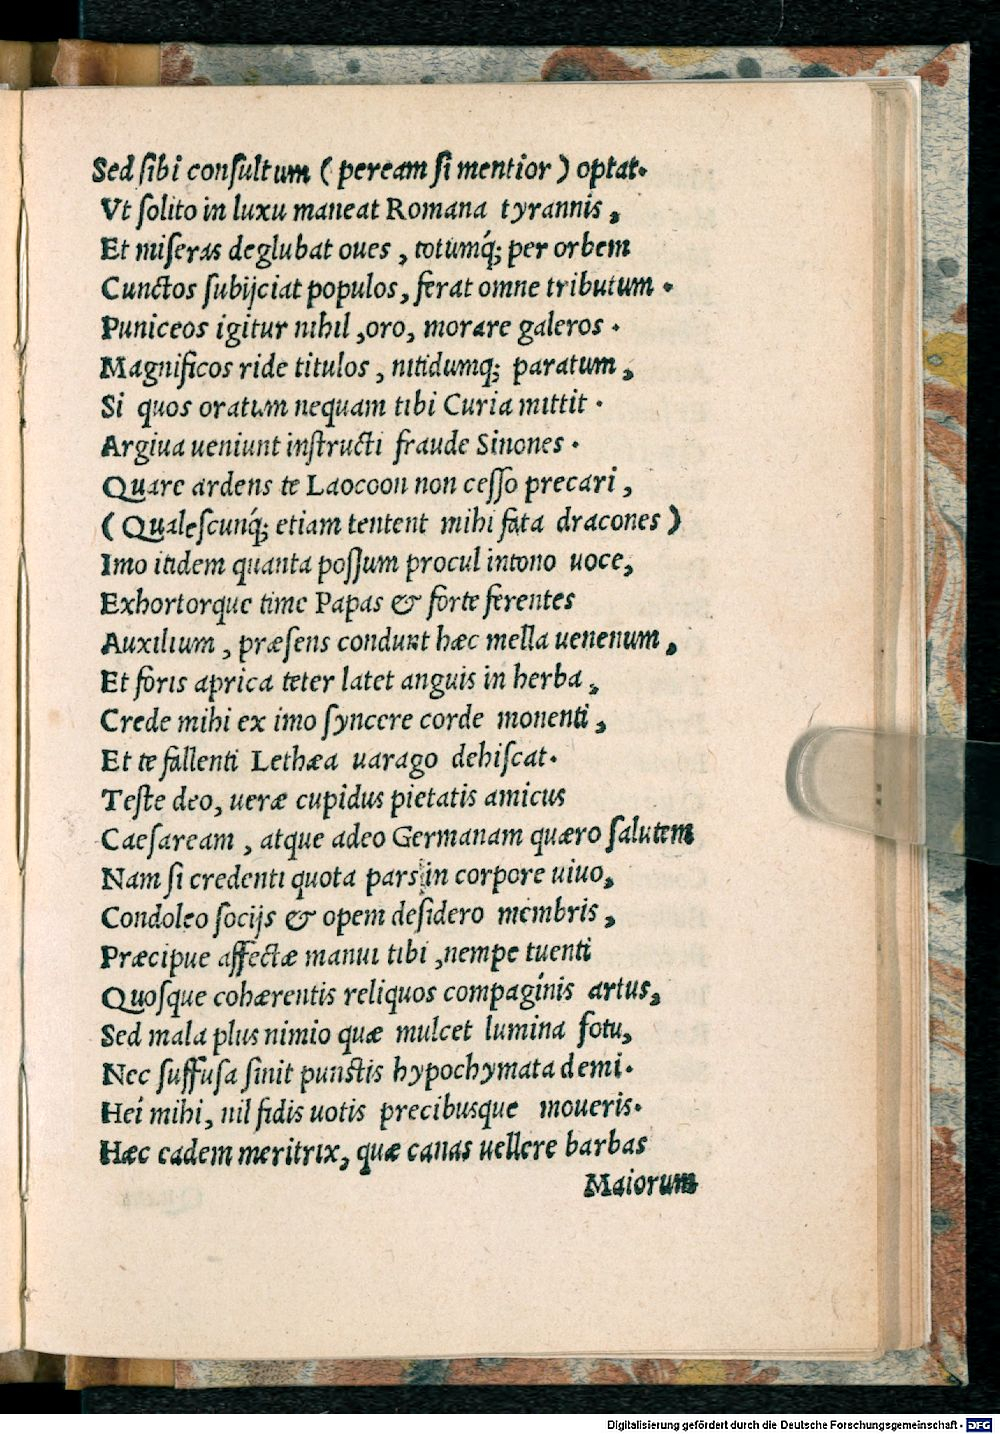 Sed ſibi conſultum ( peream ſi mentior ) optat.
Vt ſolito in luxu maneat Romana tyrannis ,
Et miſeras deglubat oues , totumq́; per orbem
Cunctos ſubijciat populos , ferat omne tributum .
Puniceos igitur nihil ,oro, morare galeros .
Magnificos ride titulos , nitidumq; paratum ,
Si quos oratum nequam tibi Curia mittit .
Argiua ueniunt inſtructi fraude Sinones .
Quare ardens te Laocoon non ceſſo precari ,
( Qualeſcunq́; etiam tentent mihi fata dracones )
Imo itidem quanta poſſum procul intono uoce,
Exhortorque time Papas & forte ferentes
Auxilium , præſens condunt hæc mella uenenum ,
Et foris aprica teter latet anguis in herba ,
Crede mihi ex imo ſyncere corde monenti ,
Et te fallenti Lethæa uarago dehiſcat.
Teſte deo, ueræ cupidus pietatis amicus
Caeſaream , atque adeo Germanam quæro ſalutem
Nam ſi credenti quota pars in corpore uiuo,
Condoleo ſocijs & opem deſidero membris ,
Præcipue affectæ manui tibi ,nempe tuenti
Quoſque cohærentis reliquos compagínis artus,
Sed mala plus nimio quæ mulcet lumina fotu,
Nec ſuffuſa ſinit punctis hypochymata demi.
Hei mihi, nil fidis uotis precibusque moueris.
Hæc eadem meritrix, quæ canas uellere barbas
Maiorum
Digitalisierung gefördert durch die Deutsche Forschungsgemeinschaft - DFG